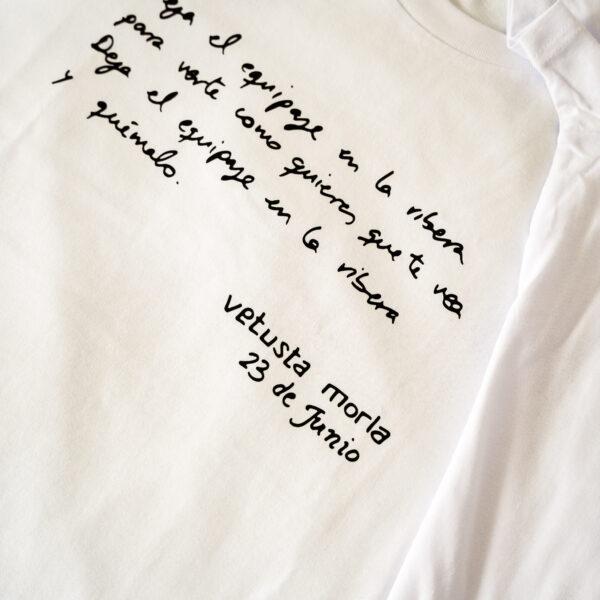 eja el equipaje en la ribera
para verte como quieres que te vea
Deja el equipaje en la ribera
y quémalo.
vetusta morla
23 de Junio